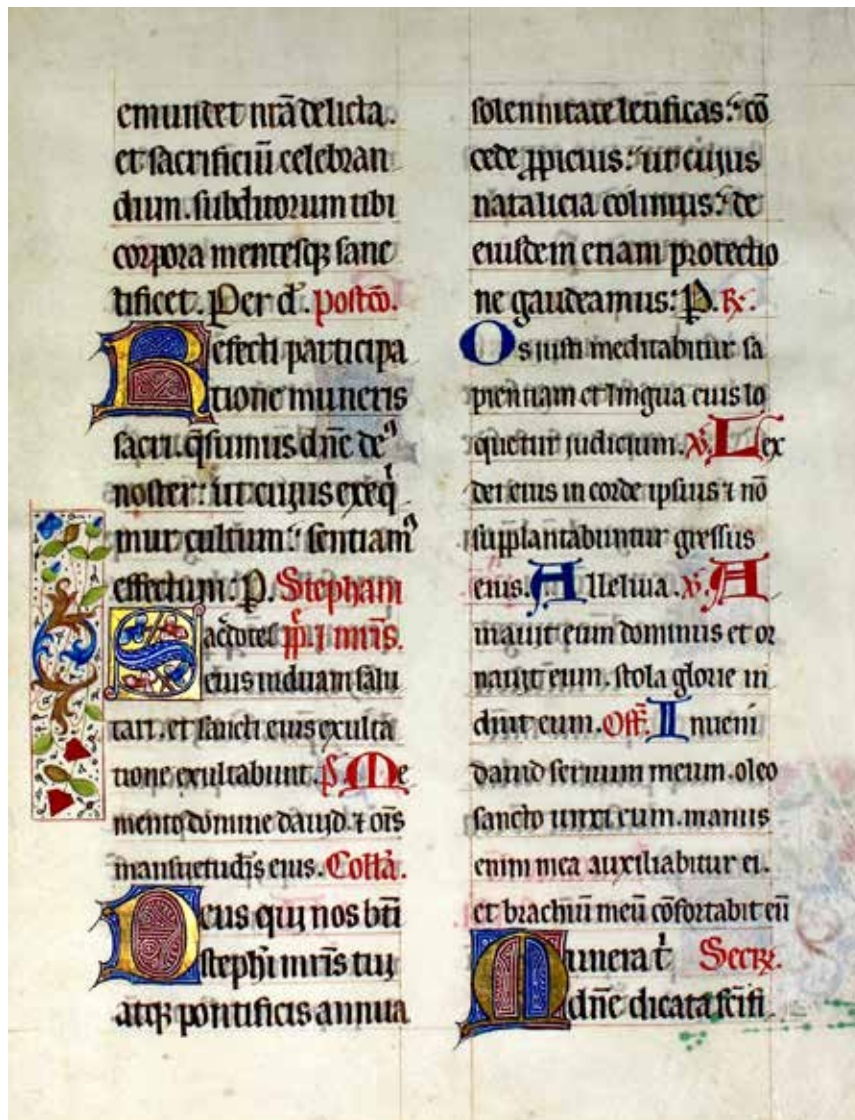 emundet nrā delicta.
et sacrificiū celebran
dium. subditorum tibi
corpora mentesqꝫ sanc
tificet. Per d. postcō.
Refecti participa
tione muneris
sacri. q̄sumus dn̄e de᾿
noster: ut cuius exeq̇
mur cultum: sentiam᾿
effectum: P. Stephani
Sac̓dotes pp̄. i mr̄is.
eius induam salu
tari. et sancti eius exulta
tione exultabunt. p̄. Me
mento domine dauid. ⁊ oīs
mansuetudīs eius. Collā.
Deus qui nos bt̄i
stephi mr̄is tui
atqꝫ pontificis annua
solennitate letificas: cō
cede ꝓpicius: ut cuius
natalicia colimus: de
eiusdem etiam protectio
ne gaudeamus: P. ℞.
Os iusti meditabitur sa
pientiam et lingua eius lo
quetur iudicium. ℣. Lex
dei eius in corde ipsius ⁊ nō
supplantabuntur gressus
eius. Alleluia. ℣. A
mauit eum dominus et or
nauit eum. stola glorie in
duit eum. Off. Inueni
dauid seruum meum. oleo
sancto unxi eum. manus
enim mea auxiliabitur ei.
et brachiū meū cōfortabit eū
Munera t̓ Secr̄.
dn̄e dicata sc̄ifi